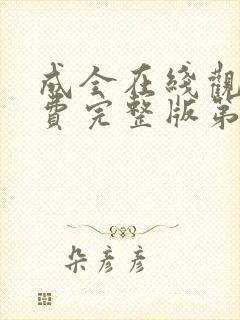 成全在綫觀
費完整版第
朵彦彦